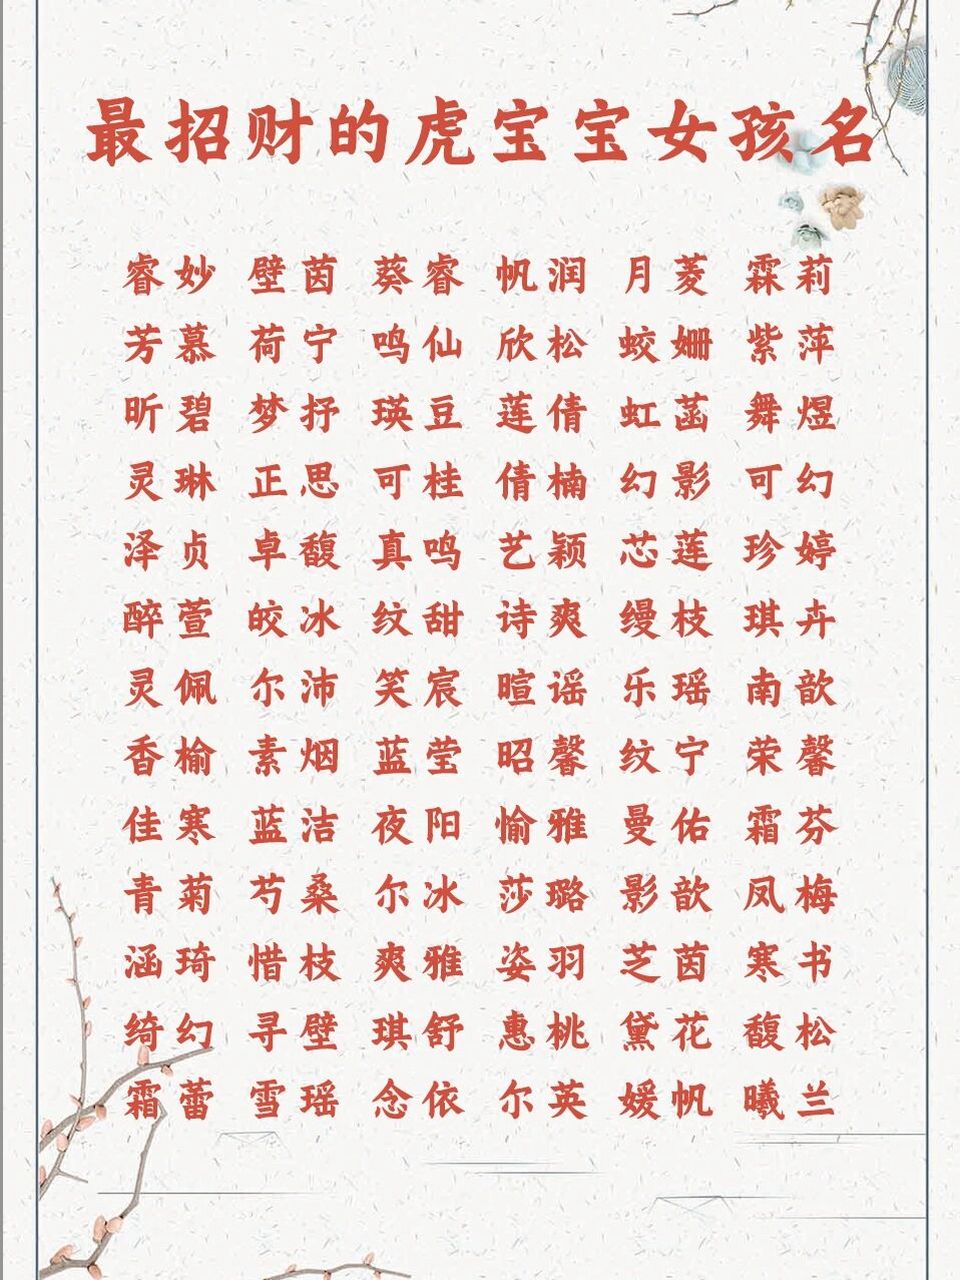 最招财的虎宝宝女孩名
睿妙 壁茵 葵睿 帆润 月菱 霖莉
芳慕 荷宁 鸣仙 欣松 蛟姗 紫萍
昕碧 梦抒 瑛豆 莲倩 虹菡 舞煜
灵琳 正思 可桂 倩楠 幻影 可幻
泽贞 卓馥 真鸣 艺颖 芯莲 珍婷
醉萱 皎冰 纹甜 诗爽 缦枝 琪卉
灵佩 尔沛 笑宸 暄谣 乐瑶 南歆
香榆 素烟 蓝莹 昭馨 纹宁 荣馨
佳寒 蓝洁 夜阳 愉雅 曼佑 霜芬
青菊 芍桑 尔冰 莎璐 影歆 凤梅
涵琦 惜枝 爽雅 姿羽 芝茵 寒书
绮幻 寻壁 琪舒 惠桃 黛花 馥松
霜蕾 雪瑶 念依 尔英 媛帆 曦兰